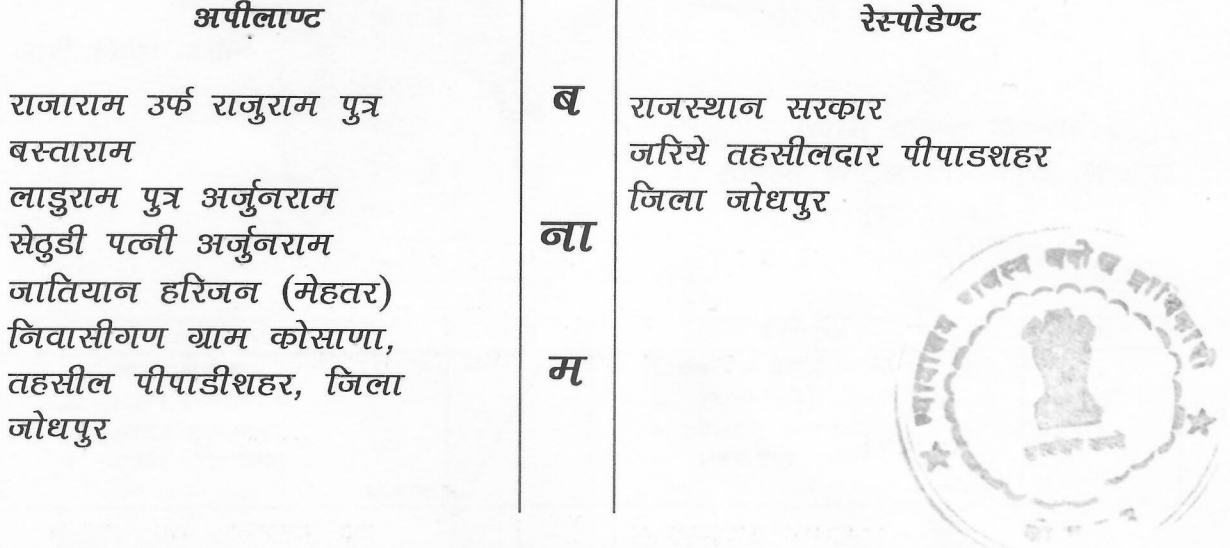 अपीलाण्ट
राजाराम उर्फ राजुराम पुत्र
बस्ताराम
लाडुराम पुत्र अर्जुनराम
सेठुडी पत्नी अर्जुनराम
जातियान हरिजन (मेहतर)
निवासीगण ग्राम कोसाणा,
तहसील पीपाडीशहर, जिला
जोधपुर
ब
ना
म
रेस्पोडेण्ट
राजस्थान सरकार
जरिये तहसीलदार पीपाडशहर
जिला जोधपुर
न्यायालय राजस्व